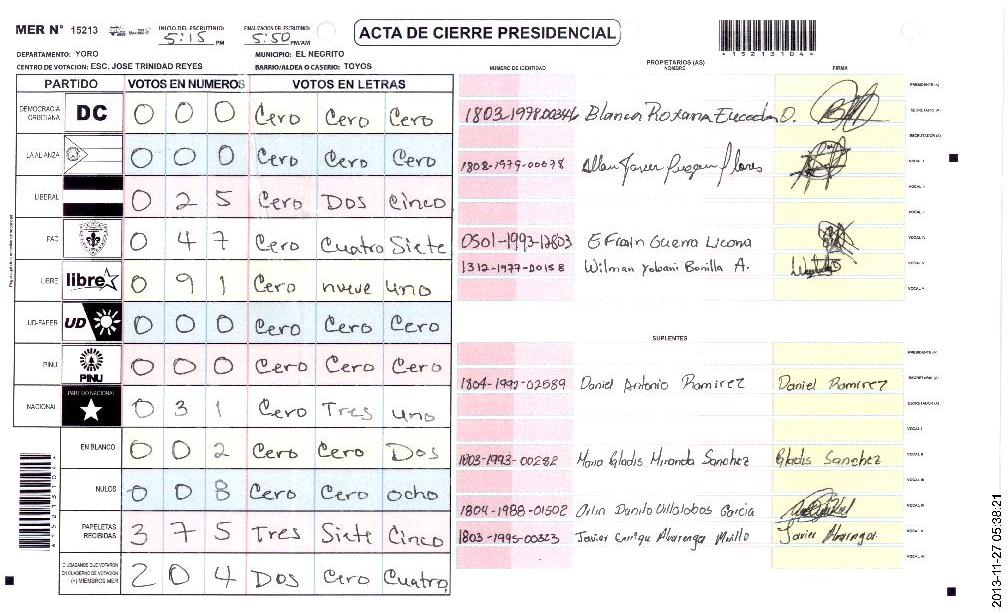 MER N° 15213
INICIO DEL ESCRUTINIO: 5:15 PM
FINALIZACION DEL ESCRUTINIO: 5:50 PM/AM
ACTA DE CIERRE PRESIDENCIAL
4152131044
DEPARTAMENTO: YORO
MUNICIPIO: EL NEGRITO
CENTRO DE VOTACION: ESC. JOSE TRINIDAD REYES
BARRIO/ALDEA O CASERIO: TOYOS
PARTIDO VOTOS EN NUMEROS VOTOS EN LETRAS
DEMOCRACIA CRISTIANA DC 0 0 0 Cero Cero Cero
LA ALIANZA 0 0 0 Cero Cero Cero
LIBERAL 0 2 5 Cero Dos Cinco
PAC 0 4 7 Cero Cuatro Siete
LIBRE libre 0 9 1 Cero nueve uno
UD-FAPER UD 0 0 0 Cero Cero Cero
PINU PINU 0 0 0 Cero Cero Cero
NACIONAL PARTIDO NACIONAL 0 3 1 Cero Tres uno
EN BLANCO 0 0 2 Cero Cero Dos
NULOS 0 0 8 Cero Cero ocho
PAPELETAS RECIBIDAS 3 7 5 Tres Siete Cinco
CIUDADANOS QUE VOTARON EN CUADERNO DE VOTACION (+) MIEMBROS MER 2 0 4 Dos Cero Cuatro
NUMERO DE IDENTIDAD
PROPIETARIOS (AS)
NOMBRE
FIRMA
PRESIDENTE (A)
1803-1978-00346 Blanca Roxana O.
SECRETARIO (A)
ESCRUTADOR (A)
1808-1979-00078 Allan Javier Flores
VOCAL I
VOCAL II
VOCAL III
0501-1993-12803 EFrain Guerra Licona
VOCAL IV
1312-1977-00158 Wilman Yobani Bonilla A.
VOCAL V
VOCAL VI
SUPLENTES
PRESIDENTE (A)
1804-1992-02589 Daniel Antonio Ramirez Daniel Ramirez
SECRETARIO (A)
ESCRUTADOR (A)
VOCAL I
1803-1993-00282 Maria Gladis Miranda Sanchez Gladis Sanchez
VOCAL II
VOCAL III
1804-1988-01502 Arlin Danilo Villalobos Garcia
VOCAL IV
1803-1995-00323 Javier Enrique Alvarenga Murillo Javier Alvarenga
VOCAL V
VOCAL VI
2013-11-27 05:38:21